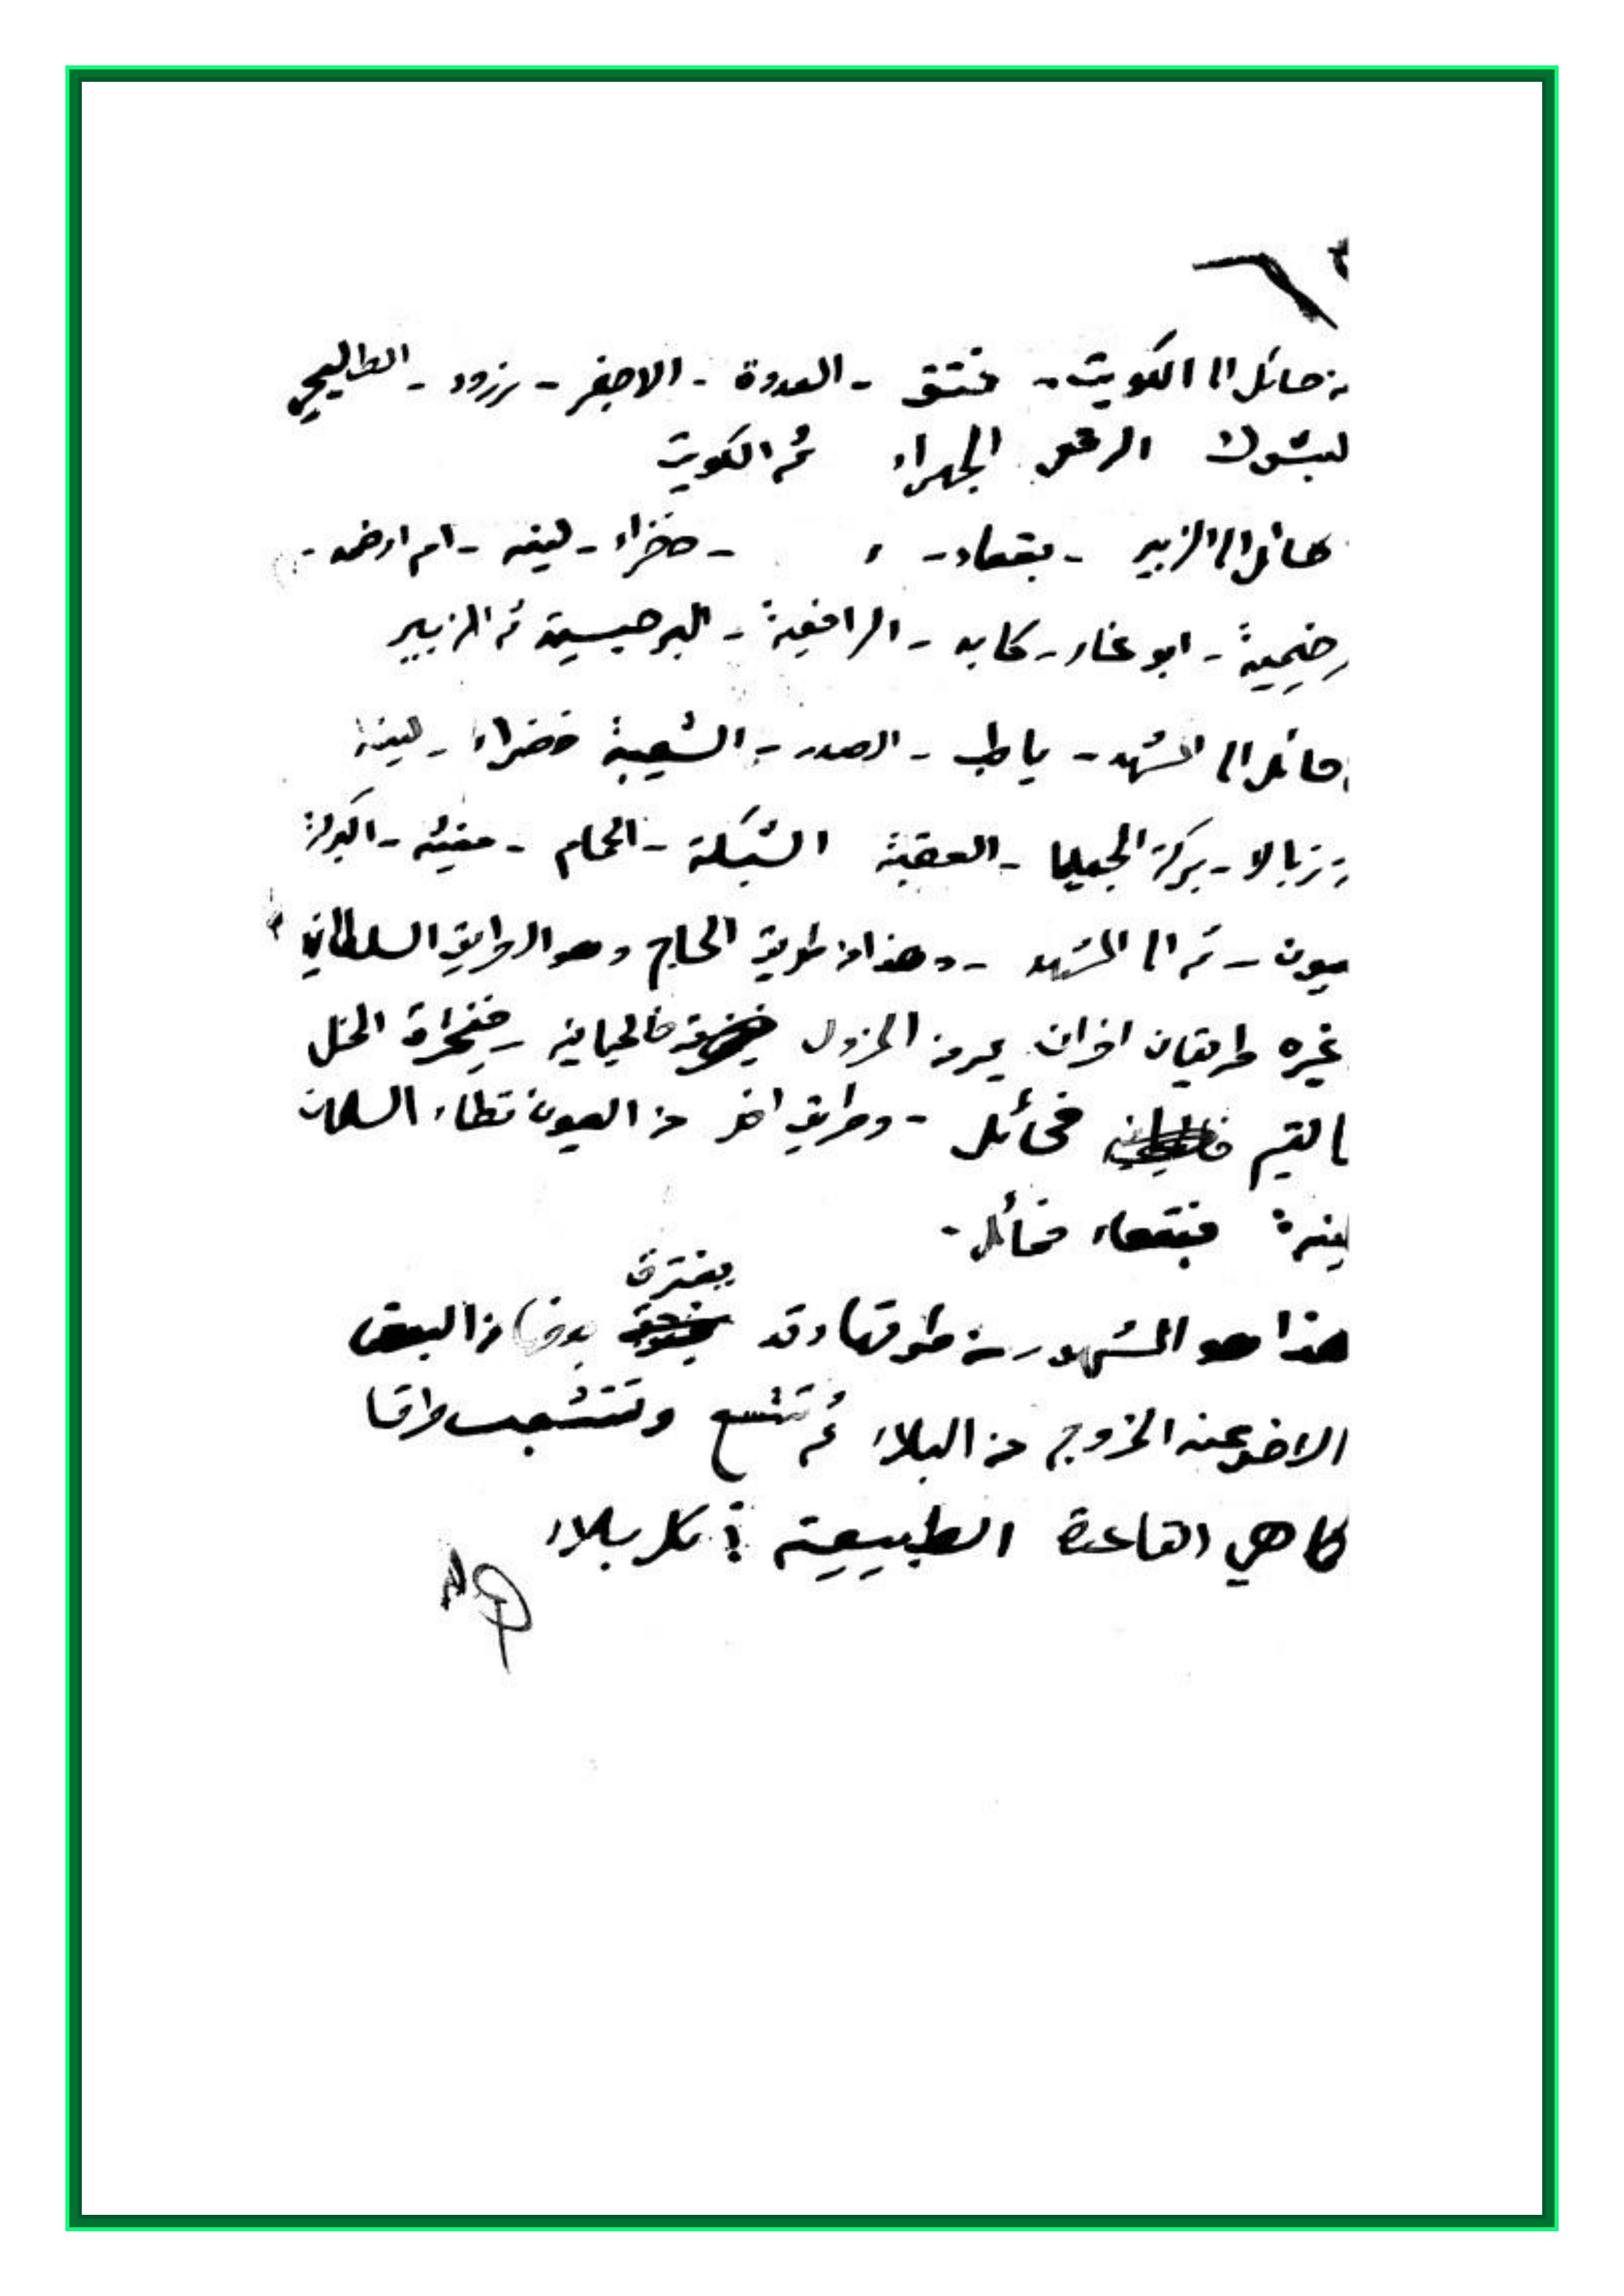 من حائل الى الكويت - فتق - العدوة - الاجفر - زرود - الطليحي
لبشوك الرقعي الجهراء ثم الكويت
حائل الى الزبير - بقعاء - خضراء - لينه - ام ارضمه -
رخيمية - ابو غار - كابده - الرافعية - البرجيسية ثم الزبير
حائل الى المشهد - ياطب - الصدر - الشعيبة خضراء - لينة
زبالا - بركة الجميما - العقبة الشبكة - الحمام - مغيثه -
عيون - ثم الى المشهد - وهذا طريق الحاج وهو الطريق السلطاني
غيره طريقان اخران يمر من الحزول فالحيانيه الخل
التيم فحائل - وطريق اخر من العيون تطاء السلمان
لينة فبقعاء فحائل -
يفترق
هذا هو المشهور من طرقها وقد بعضها من البعض
الاخر عند الخروج من البلاد ثم تتسع وتتشعب طرقا
كما هي القاعدة الطبيعية في كل بلاد